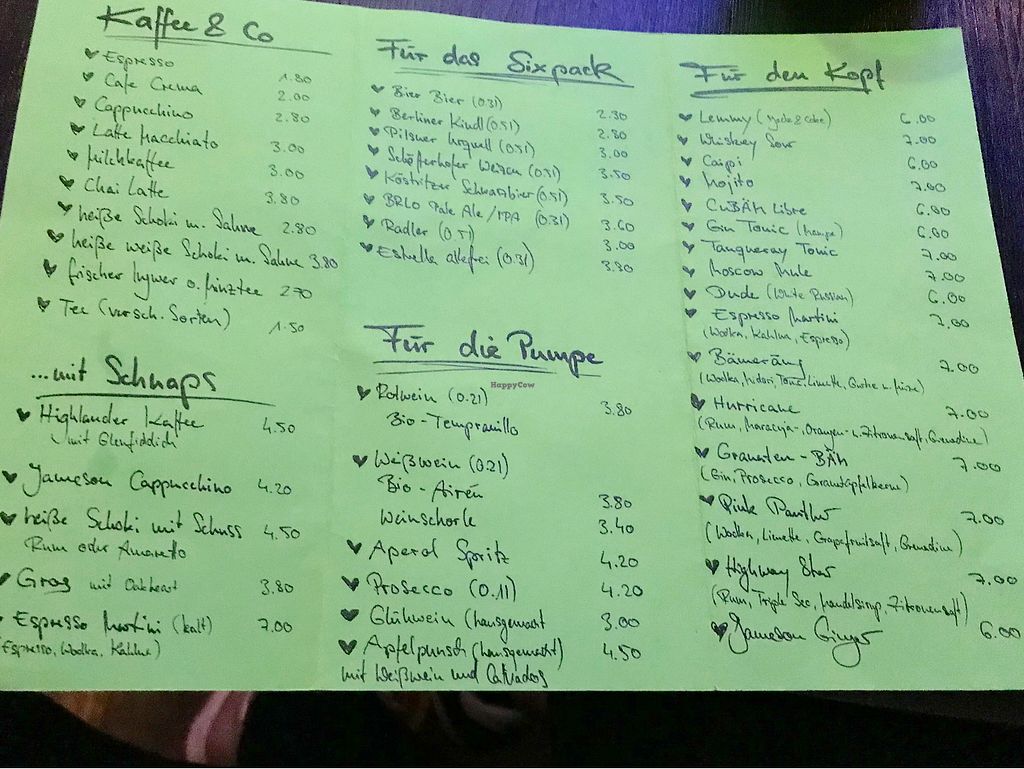 Kaffee & Co
Espresso 1.80
Cafe Crema 2.00
Cappucchino 2.80
Latte Macchiato 3.00
Milchkaffee 3.00
Chai Latte 3.80
heiße Schoki m. Sahne 2.80
heiße weiße Schoki m. Sahne 3.80
frischer Ingwer o. Minztee 2.70
Tee (versch. Sorten) 1.50
...mit Schnaps
Highlander Kaffee 4.50
mit Glenfiddich
Jameson Cappucchino 4.20
heiße Schoki mit Schuss 4.50
Rum oder Amaretto
Grog mit Oakheart 3.80
Espresso Martini (kalt) 7.00
(Espresso, Wodka, Kahlua)
Für das Sixpack
Bier Bier (0.3l) 2.30
Berliner Kindl (0.5l) 2.80
Pilsner Urquell (0.5l) 3.00
Schöfferhofer Weizen (0.5l) 3.50
Köstritzer Schwarzbier (0.5l) 3.50
BRLO Pale Ale / IPA (0.3l) 3.60
Radler (0.5l) 3.00
Estrella alkfrei (0.3l) 3.30
Für die Pumpe
HappyCow
Rotwein (0.2l) 3.80
Bio-Tempranillo
Weißwein (0.2l)
Bio-Airén 3.80
Weinschorle 3.40
Aperol Spritz 4.20
Prosecco (0.1l) 4.20
Glühwein (hausgemacht 3.00
Apfelpunsch (hausgemacht) 4.50
mit Weißwein und Calvados
Für den Kopf
Lemmy (Jacky & Coke) 6.00
Whiskey Sour 7.00
Caipi 6.00
Mojito 7.00
CuBÄH Libre 6.80
Gin Tonic (Hampe) 6.80
Tanqueray Tonic 7.00
Moscow Mule 7.00
Dude (White Russian) 6.00
Espresso Martini 7.00
(Wodka, Kahlua, Espresso)
Bämeräng 7.00
(Wodka, Midori, Tonic, Limette, Gurke u. Minze)
Hurricane 7.00
(Rum, Maracuja-, Orangen- u. Zitronensaft, Grenadine)
Granaten-BÄH 7.00
(Gin, Prosecco, Granatapfelkerne)
Pink Panther 7.00
(Wodka, Limette, Grapefruitsaft, Grenadine)
Highway Star 7.00
(Rum, Triple Sec, Mandelsirup, Zitronensaft)
Jameson Ginger 6.00